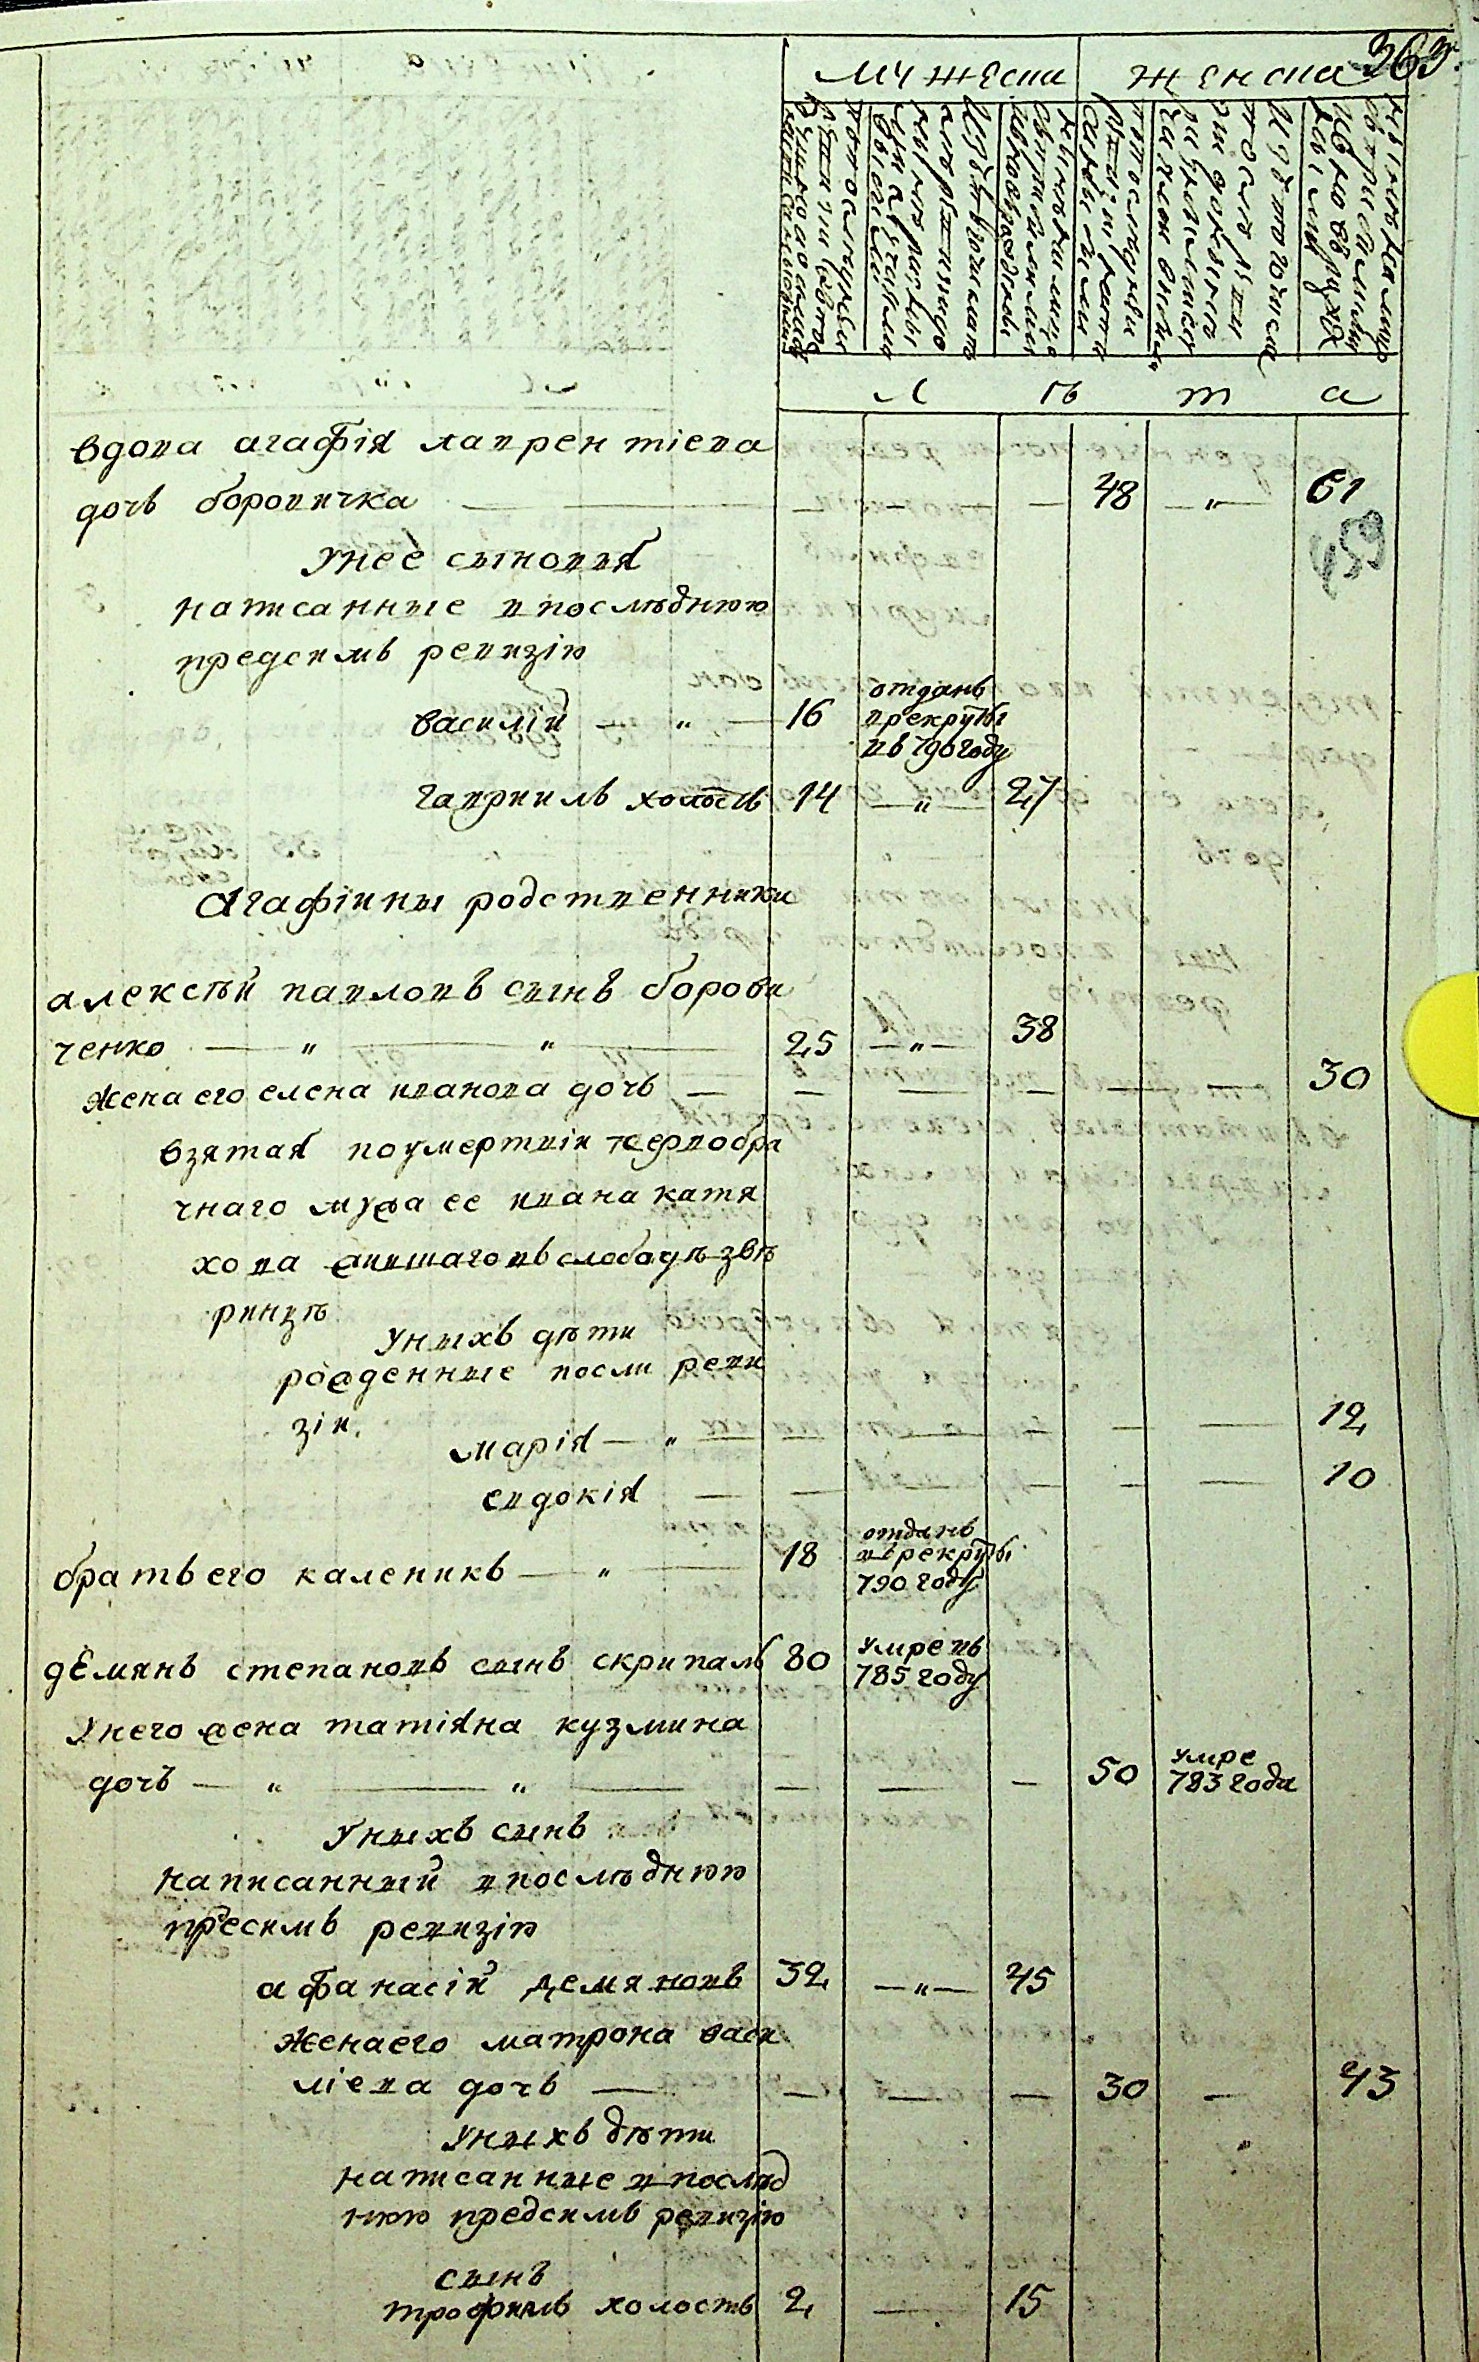 363.
мужеска женска
л ѣ т а
вдова агафія лаврентіева
дочь боровичка — — — — 48 — „ — 61
459
У нее сыновья
написанные в послѣднюю
пред симъ ревизію
василій — „ — 16 отданъ
в рекруты
въ 790 году
гавриилъ холостъ 14 — „ — 27
Агафіины родственники
алексѣй павловъ сынъ борови
ченко — „ — „ — 25 — „ — 38
жена его елена иванова дочь — — — — — — 30
взятая по умертвіи первобра
чнаго мужа ее ивана катя
хова жившаго въ слободѣ звѣ
ринцѣ
У ныхъ дѣти
рожденные посли реви
зіи
марія — „ — — — — — 12
евдокія — — — — — — 10
братъ его каленикъ — „ — 18 отданъ
в рекруты
790 году
дёмянъ степановъ сынъ скрипаль 80 умре въ
785 году
У него жена татіяна кузмина
дочь — „ — „ — — — — 50 умре
783 года
У ныхъ сынъ
написанный в послѣднюю
пре симъ ревизію
афанасій демяновъ 32 — „ — 45
жена его матрона васи
ліева дочь — — — — 30 — 43
У ныхъ дѣти
написанные в послѣд
нюю пред симъ ревизію
сынъ
трофимъ холостъ 2 — 15